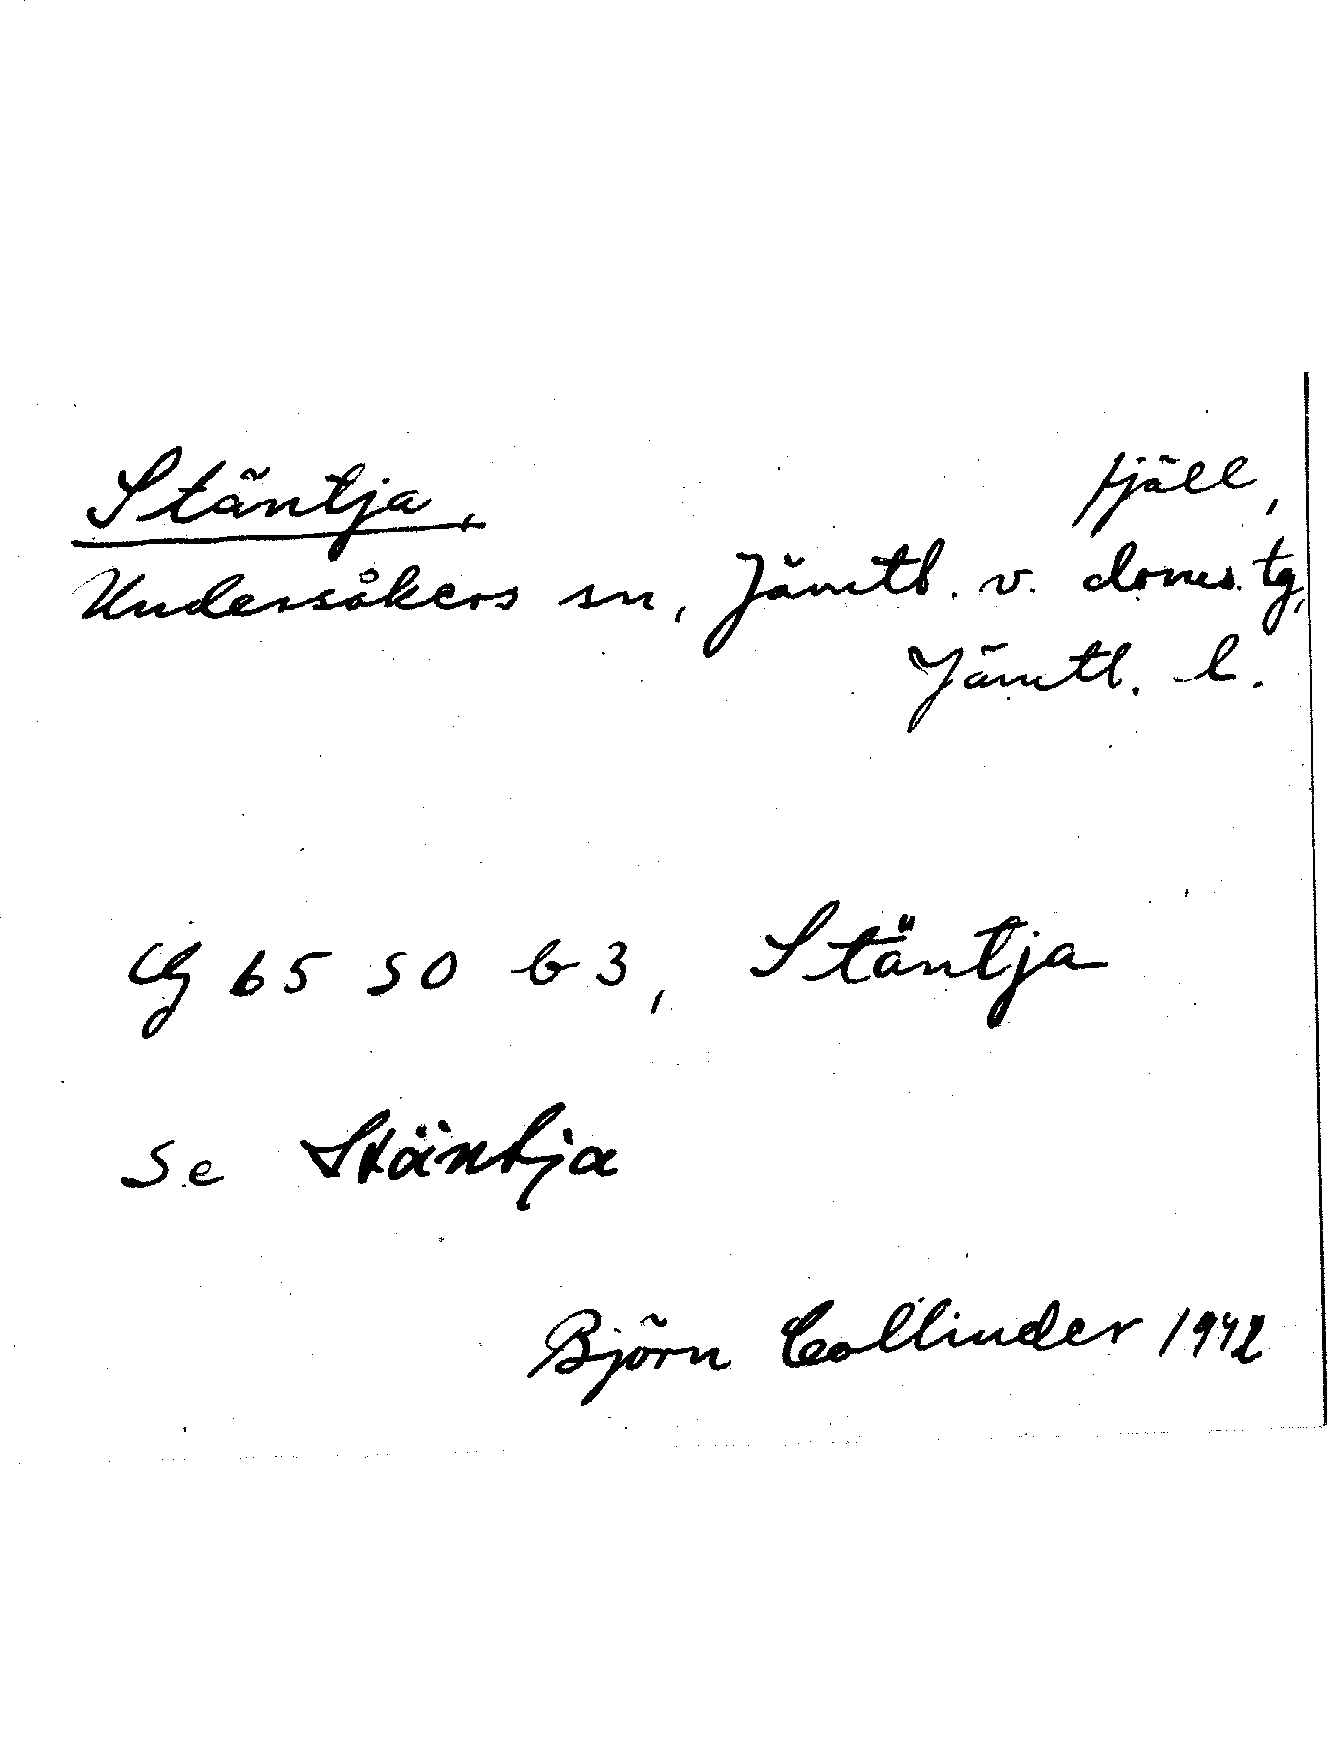 Stäntja, fjäll,
Undersåkers sn, Jämtl. v. doms. tg,
Jämtl. l.
Cg 65 50 b 3, Stäntja
Se Stäntja
Björn Collinder 1942